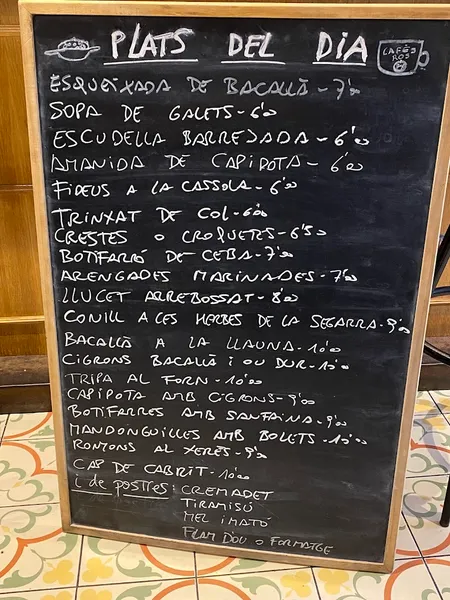 PLATS DEL DIA
CAFÈS ROS
ESQUEIXADA DE BACALLÀ - 7'00
SOPA DE GALETS - 6'00
ESCUDELLA BARREJADA - 6'00
AMANIDA DE CAPIPOTA - 6'00
FIDEUS A LA CASSOLA - 6'00
TRINXAT DE COL - 6'00
CRESTES O CROQUETES - 6'50
BOTIFARRÓ DE CEBA - 7'00
ARENGADES MARINADES - 7'00
LLUCET ARREBOSSAT - 8'00
CONILL A LES HERBES DE LA SEGARRA - 9'00
BACALLÀ A LA LLAUNA - 10'00
CIGRONS BACALLÀ i OU DUR - 10'00
TRIPA AL FORN - 10'00
CAPIPOTA AMB CIGRONS - 9'00
BOTIFARRES AMB SANFAINA - 9'00
MANDONGUILLES AMB BOLETS - 10'00
RONYONS AL XERÈS - 9'00
CAP DE CABRIT - 10'00
i de postres: CREMADET
TIRAMISÚ
MEL i MATÓ
FLAM D'OU O FORMATGE